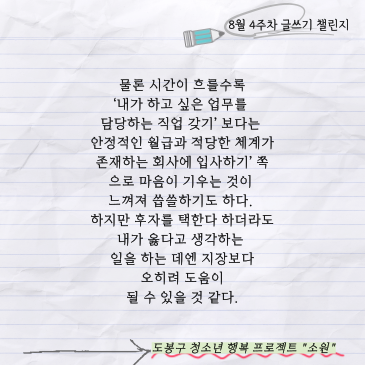 8월 4주차 글쓰기 챌린지
물론 시간이 흐를수록
‘내가 하고 싶은 업무를
담당하는 직업 갖기’ 보다는
안정적인 월급과 적당한 체계가
존재하는 회사에 입사하기’ 쪽
으로 마음이 기우는 것이
느껴져 씁쓸하기도 하다.
하지만 후자를 택한다 하더라도
내가 옳다고 생각하는
일을 하는 데엔 지장보다
오히려 도움이
될 수 있을 것 같다.
도봉구 청소년 행복 프로젝트 "소원"